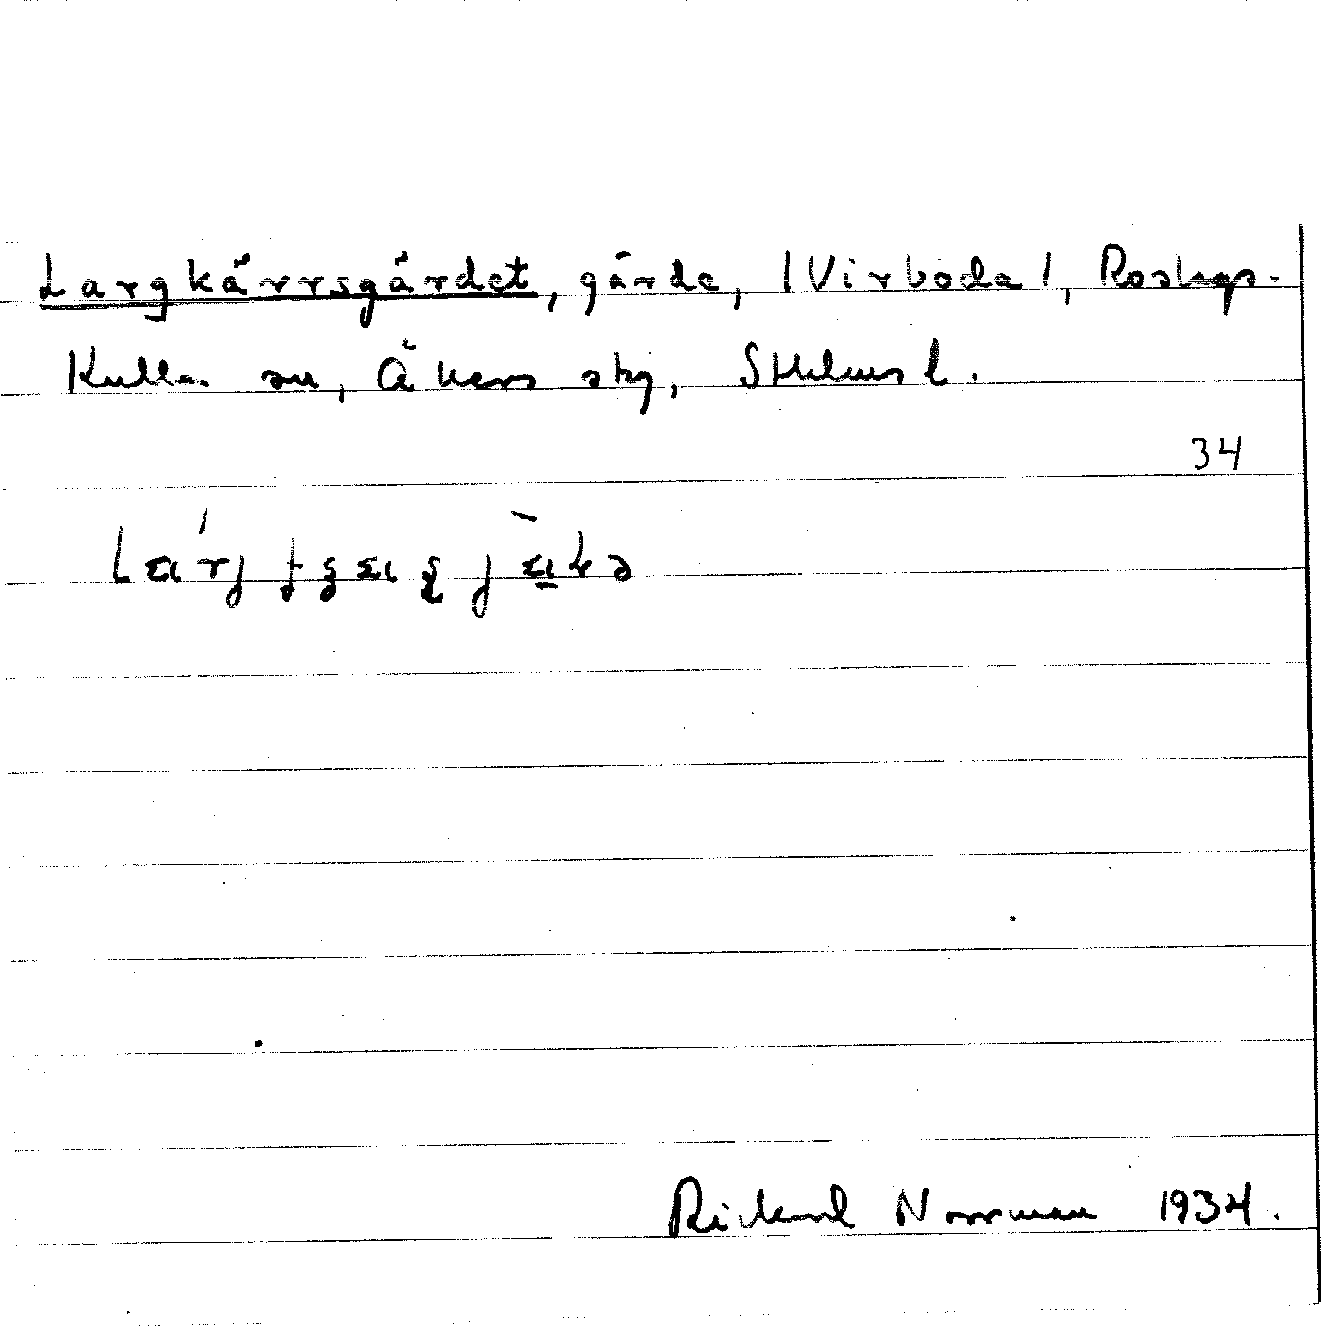 Largkärrsgärdet, gärde, /Virboda/, Roslags-
Kulla sn, Åkers skg, Sthlms l.
34
Rickard Norrman 1934.